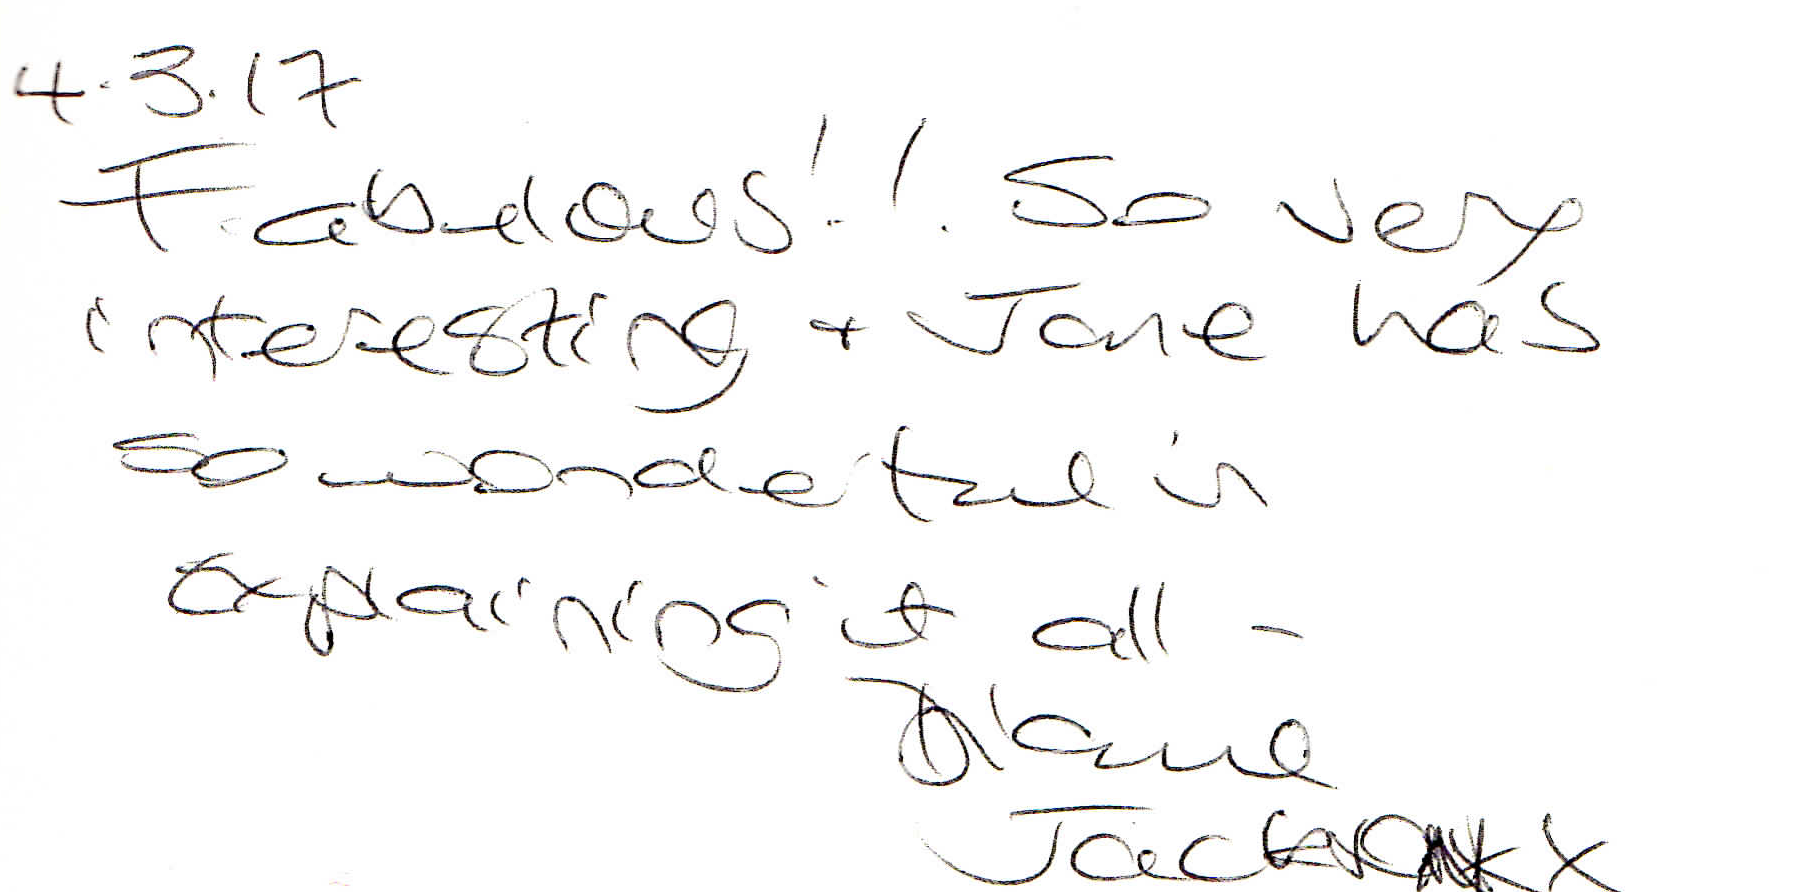 4.3.17
Fabulous!!. So very
interesting + Jane has
so wonderful in
explaining it all -
Diane
X